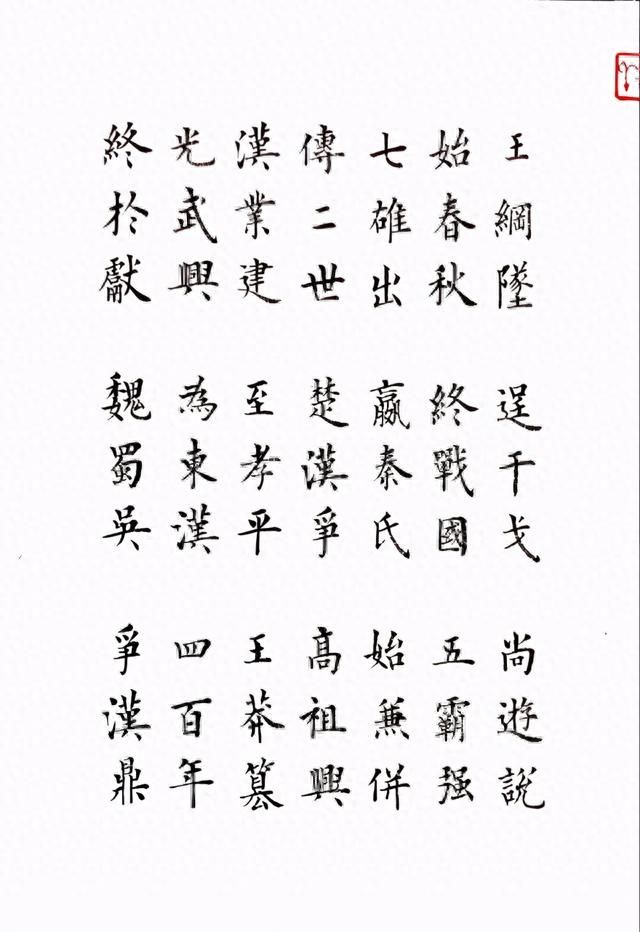 王綱墜 逞干戈 尚遊說
始春秋 終戰國 五霸强
七雄出 嬴秦氏 始兼併
傳二世 楚漢爭 高祖興
漢業建 至孝平 王莽篡
光武興 為東漢 四百年
終於獻 魏蜀吳 爭漢鼎